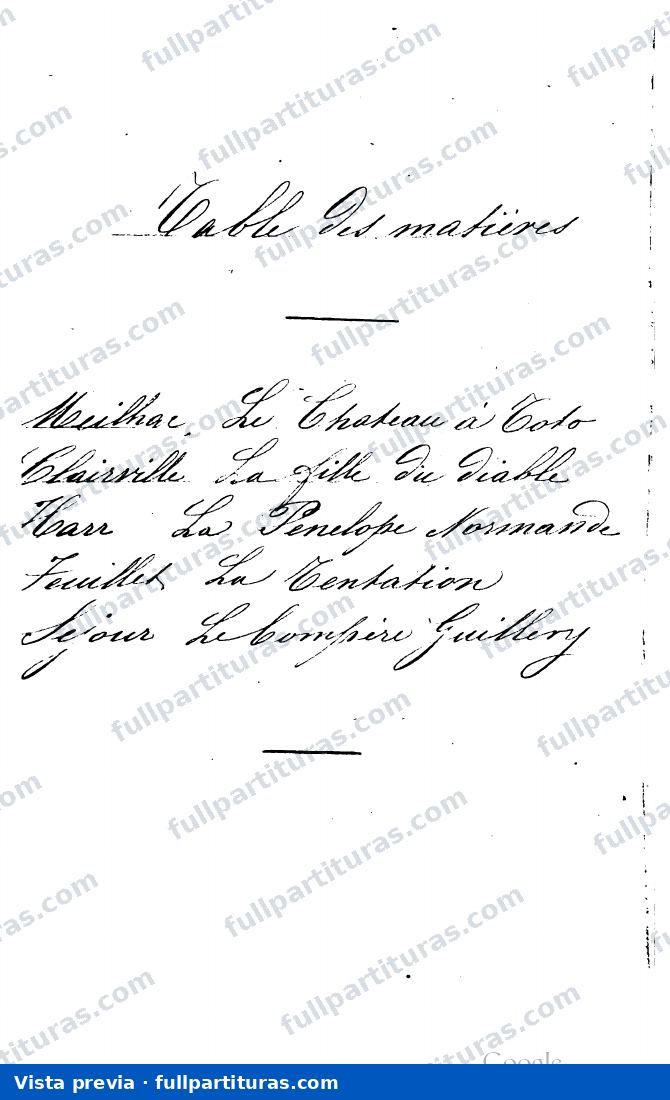 Table des matières
Meilhac, Le Chateau à Toto
Clairville La fille du diable
Karr La Pénelope Normande
Feuillet La Tentation
Séjour Le Compère Guillery
Google
Vista previa · fullpartituras.com